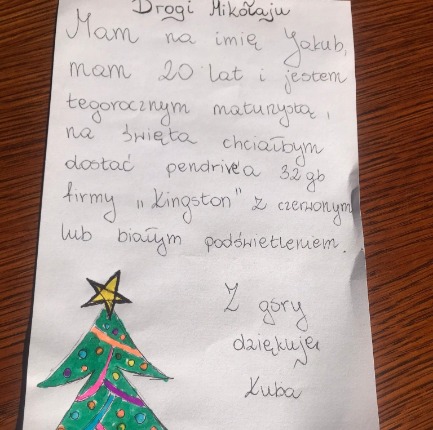 Drogi Mikołaju
Mam na imię Jakub,
mam 20 lat i jestem
tegorocznym maturzystą,
na święta chciałbym
dostać pendrive'a 32gb
firmy "Kingston" z czerwonym
lub białym podświetleniem.
Z góry
dziękuję
Kuba